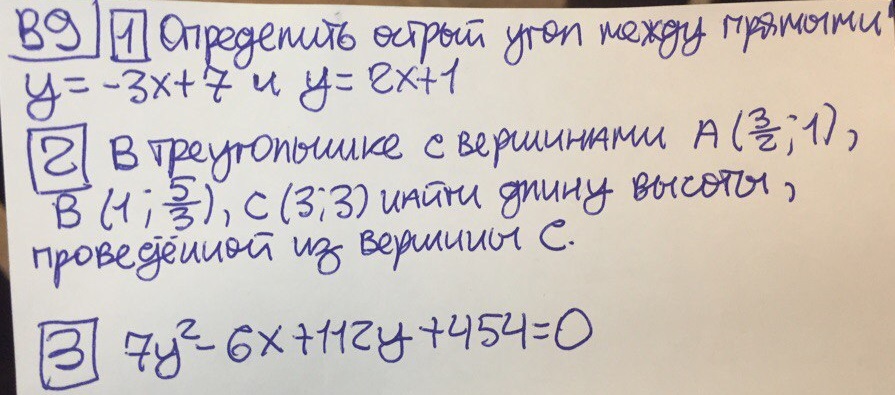 В9 1 Определить острый угол между прямыми
y = -3x + 7 и y = 2x+1
2 В треугольнике с вершинами A (3/2; 1),
B (1; 5/3), C (3; 3) найти длину высоты,
проведённой из вершины C.
3 7y² - 6x + 112y + 454 = 0